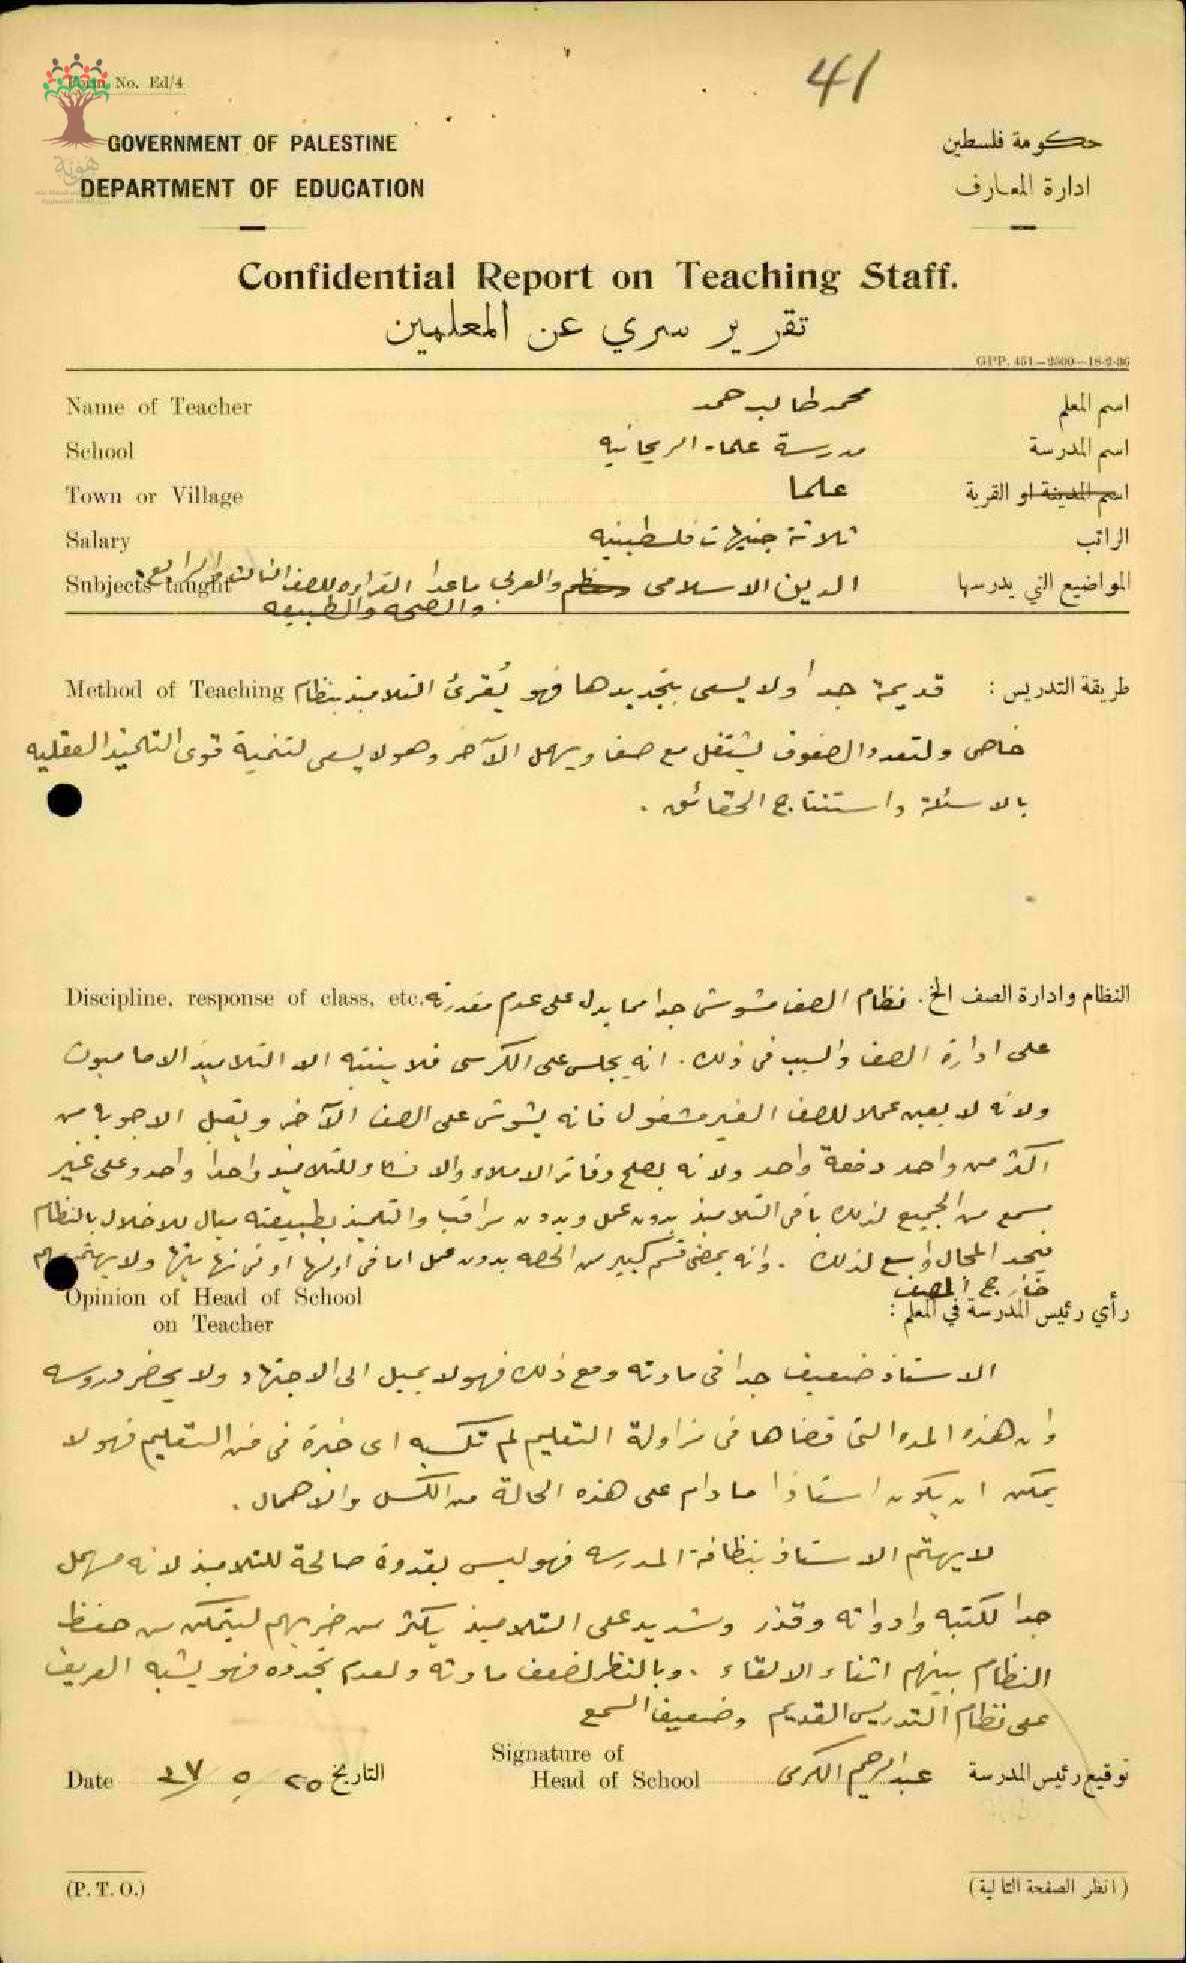 41
Form No. Ed/4
هوية
GOVERNMENT OF PALESTINE
حكومة فلسطين
DEPARTMENT OF EDUCATION
ادارة المعارف
Confidential Report on Teaching Staff.
تقرير سري عن المعلمين
GPP. 451—2500—18-2-36
Name of Teacher محمد طالب حمد اسم المعلم
School مدرسة علما - الريحانيه اسم المدرسة
Town or Village علما اسم المدينة او القرية
Salary ثلاثة جنيهات فلسطينيه الراتب
Subjects taught الدين الاسلامي والعربي ما عدا القراءه للصف الثالث والرابع المواضيع التي يدرسها
والصحه والطبيعه
Method of Teaching طريقة التدريس : قديمة جدا ولا يسعى بتجديدها فهو يُقرئ التلاميذ بنظام
خاص ولتعدد الصفوف يشتغل مع صف ويهمل الآخر وهو لا يسعى لتنمية قوى التلميذ العقليه
بالاسئلة واستنتاج الحقائق .
Discipline, response of class, etc. النظام وادارة الصف الخ. نظام الصف مشوش جدا مما يدل على عدم مقدرته
على ادارة الصف والسبب في ذلك . انه يجلس على الكرسي فلا ينتبه الا التلاميذ الاماميون
ولانه لا يعين عملا للصف الغير مشغول فانه يشوش على الصف الآخر ويقبل الاجوبة من
اكثر من واحد دفعة واحد ولانه يصلح دفاتر الاملاء والانشاء للتلاميذ واحداً واحد وعلى غير
مسمع من الجميع لذلك باقي التلاميذ بدون عمل وبدون مراقب والتلميذ بطبيعته ميال للاخلال بالنظام
فيجد المجال واسع لذلك . وانه يمضي قسم كبير من الحصه بدون عمل اما في اولها او في نهايتها ولا يهتم بهم
خارج الصف
Opinion of Head of School
on Teacher
رأي رئيس المدرسة في المعلم :
الاستاذ ضعيف جدا في مادته ومع ذلك فهو لا يميل الى الاجتهاد ولا يحضر دروسه
وان هذه المده التي قضاها في مزاولة التعليم لم تكسبه اى خبرة في فن التعليم فهو لا
يمكن ان يكون استاذا ما دام على هذه الحالة من الكسل والاهمال .
لا يهتم الاستاذ بنظافة المدرسه فهو ليس بقدوة صالحة للتلاميذ لانه مهمل
جدا لكتبه وادواته وقذر وشديد على التلاميذ يكثر من ضربهم ليتمكن من حفظ
النظام بينهم اثناء الالقاء . وبالنظر لضعف مادته ولعدم تجدده فهو يشبه العريف
على نظام التدريس القديم وضعيف السمع
Date ٢٥/٥/٣٧ التاريخ
Signature of
Head of School عبد الرحيم الكرمي توقيع رئيس المدرسة
(P. T. O.)
(انظر الصفحة التالية)